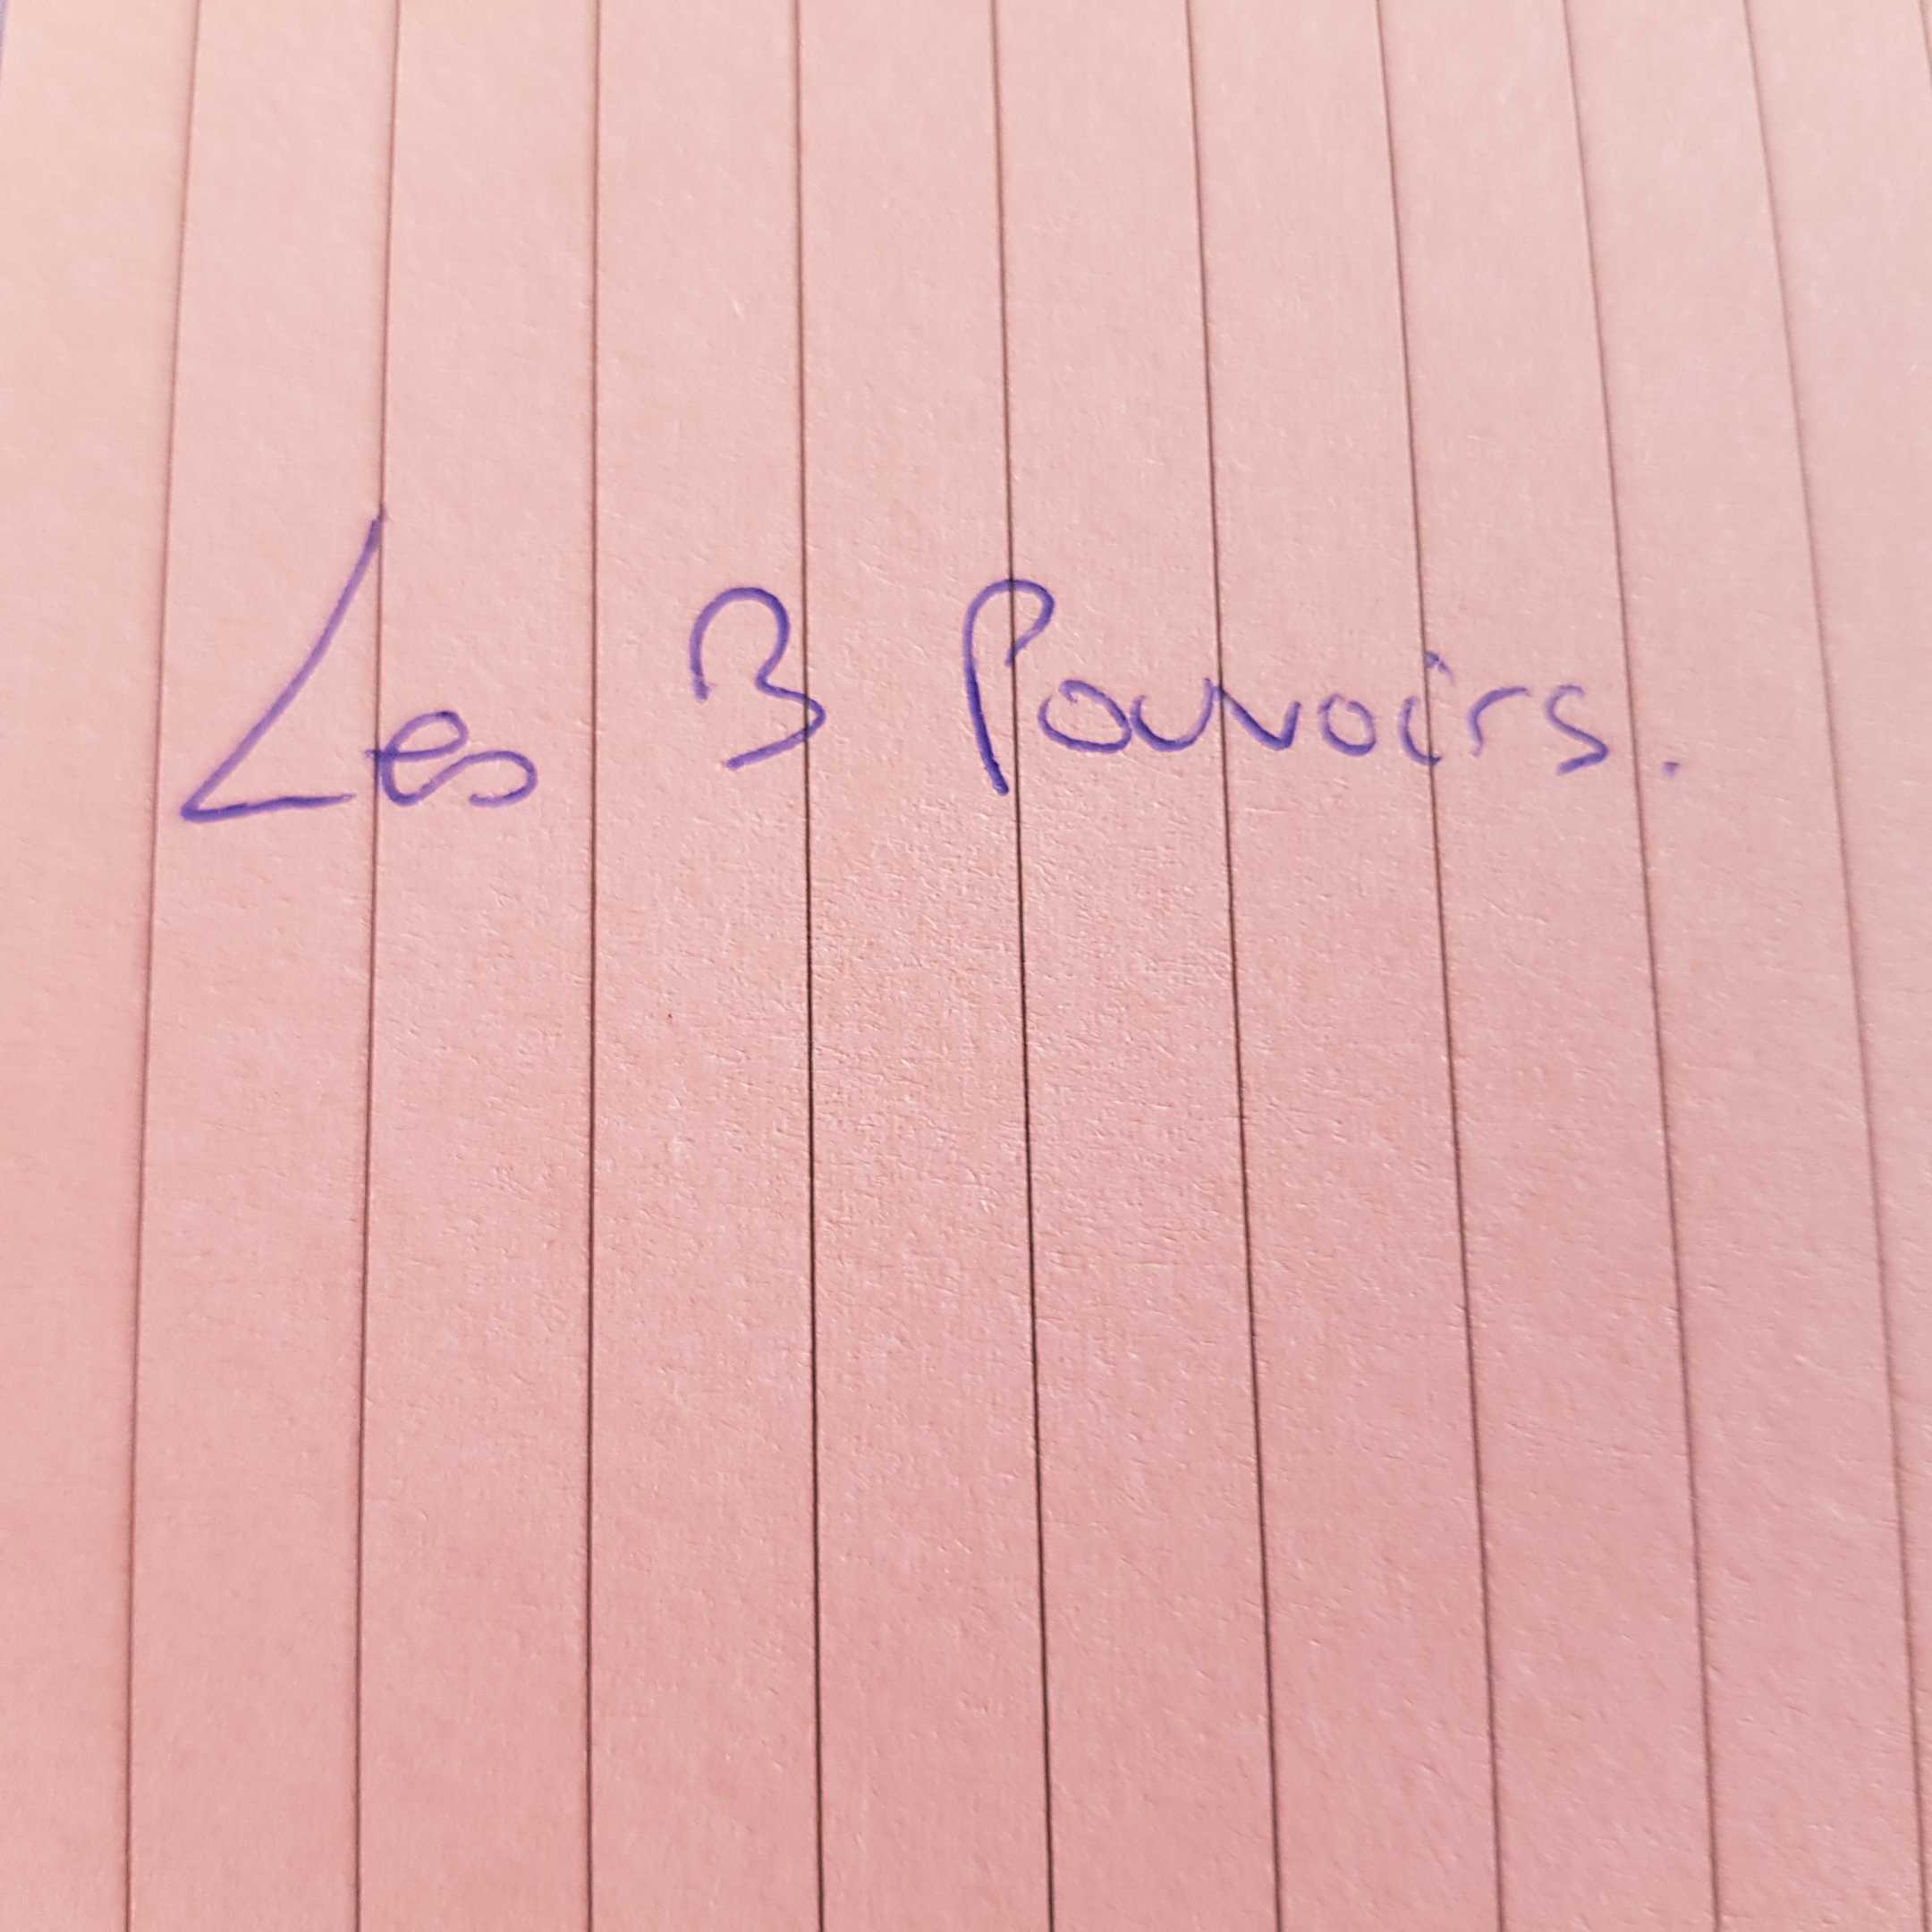 Les 3 Pouvoirs.